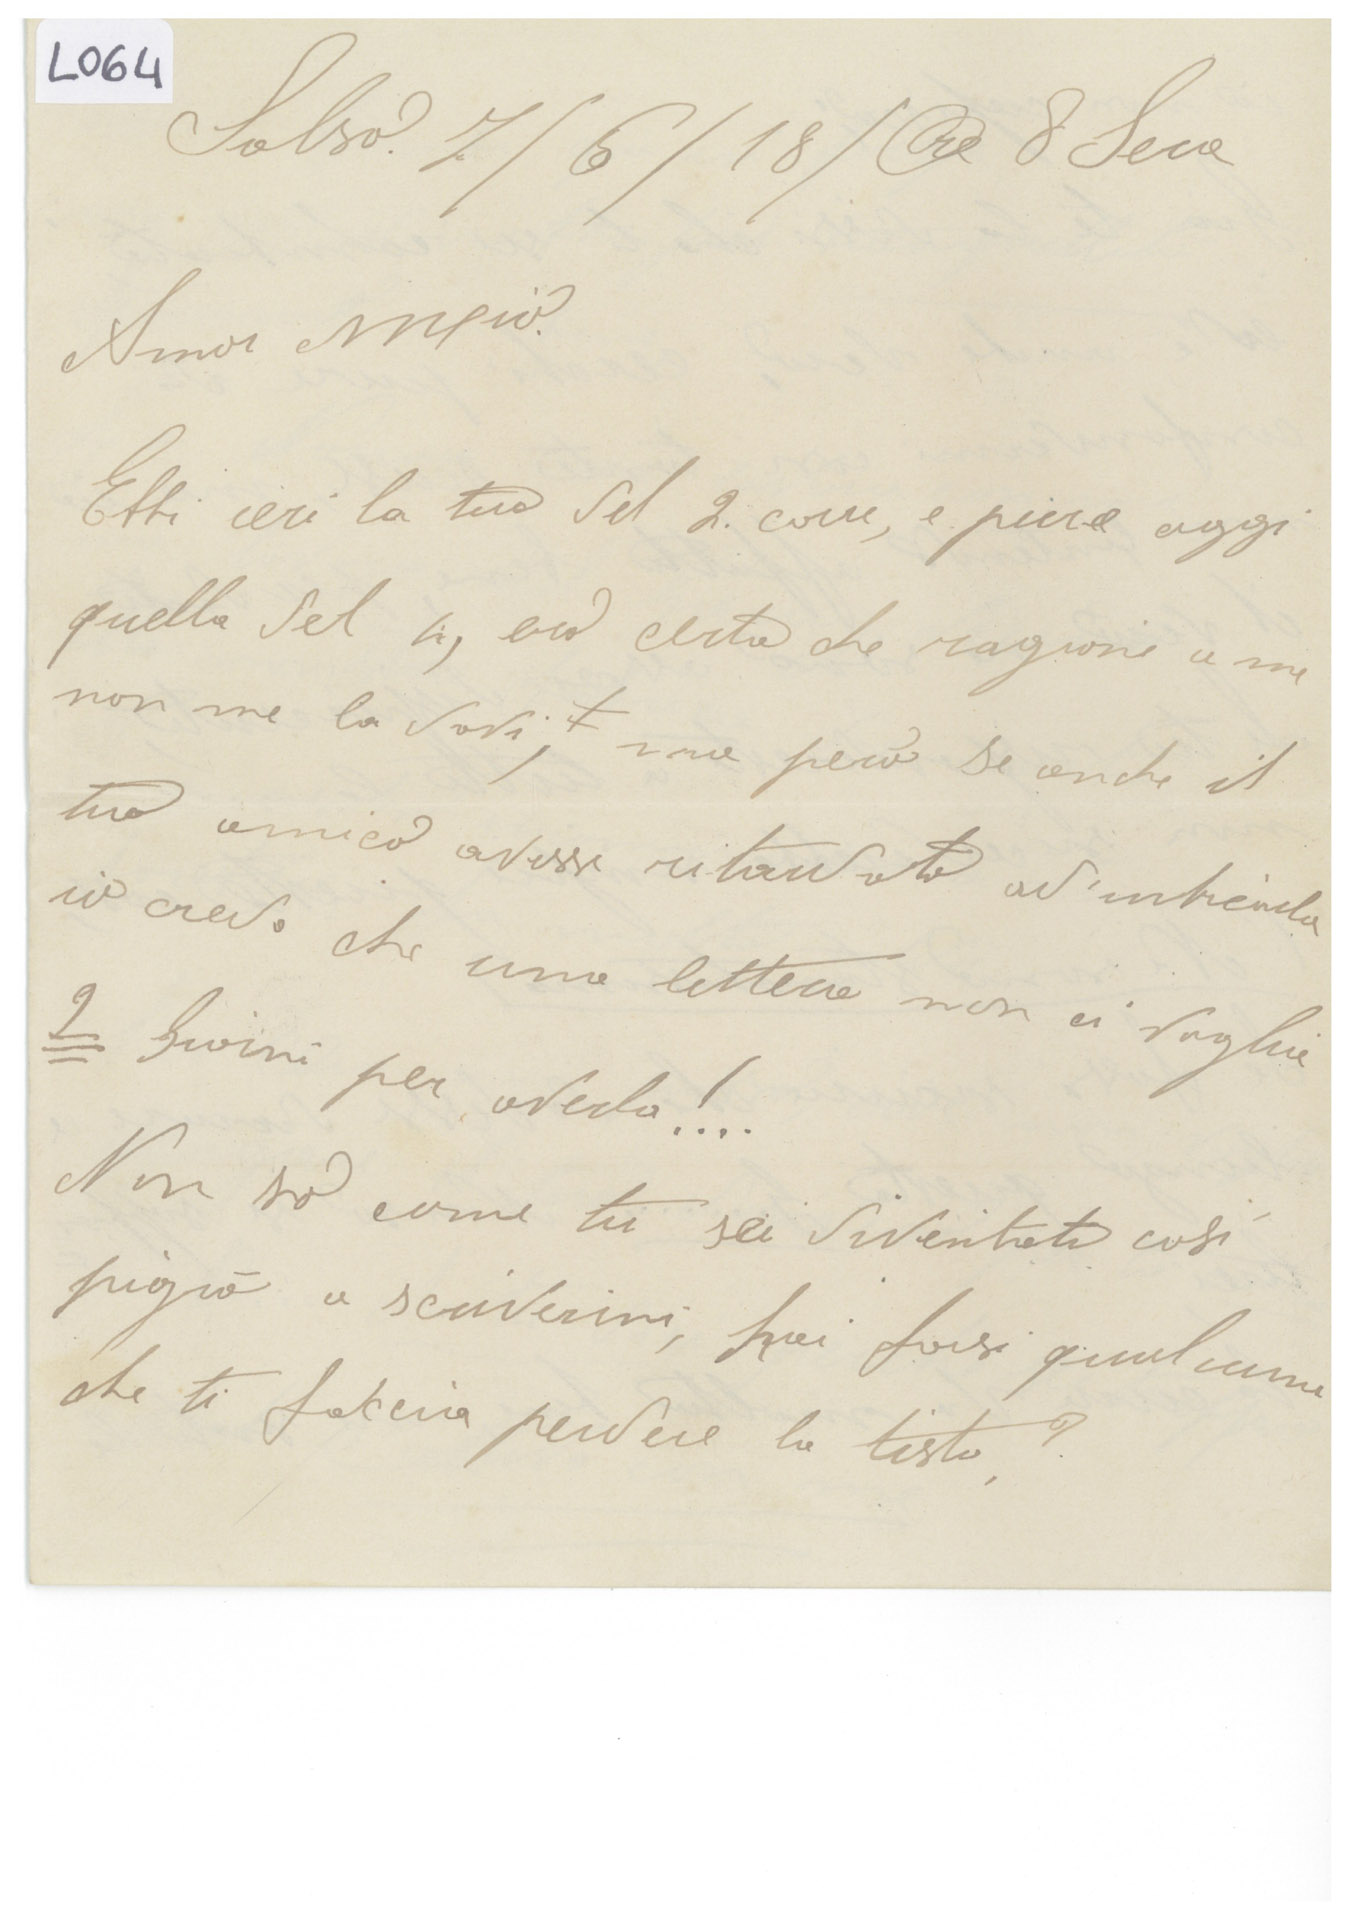 L064
Salso. 7/6/18/Ore 8 Sera
Amor Mio.
Ebbi ieri la tua del 2. corr, e pure oggi
quella del 4, ero certa che ragione a me
non me la davi, ma però se anche il
tuo amico avesse ritardato ad'
io credo che una lettera non ci voglia
9 Giorni per averla!....
Non sò come tu sei diventato così
pigro a scrivermi, hai forsi qualcuna
che ti faccia perdere la tista,?